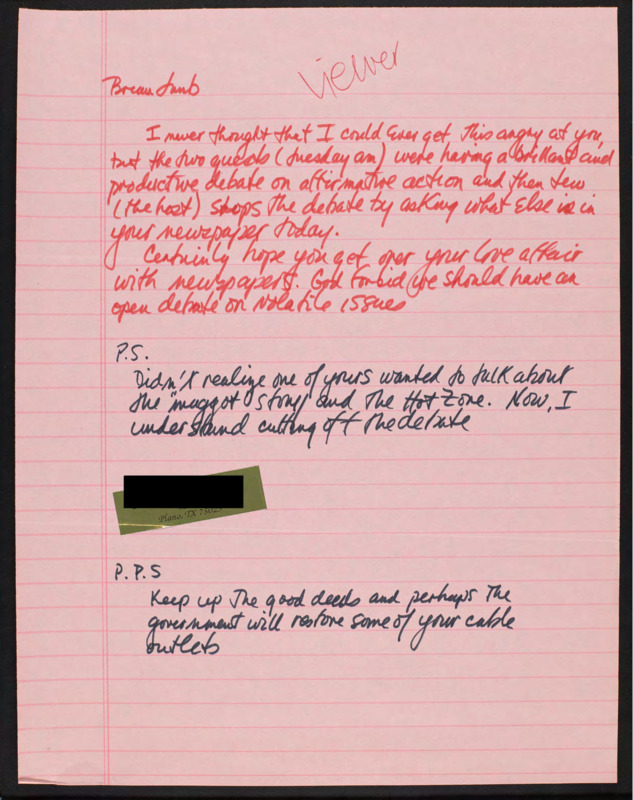 viewer
Brian Lamb
I never thought that I could ever get this angry at you,
but the two guests (Tuesday am) were having a brillant and
productive debate on affirmative action and then Lew
(the host) stops the debate by asking what else is in
your newspaper today.
Certainly hope you get over your love affair
with newspapers. God forbid we should have an
open debate on volatile issues
P.S.
Didn't realize one of yours wanted to talk about
the "maggot" story and the Hot Zone. Now, I
understand cutting off the debate
Plano, TX
P.P.S
Keep up the good deeds and perhaps the
government will restore some of your cable
outlets